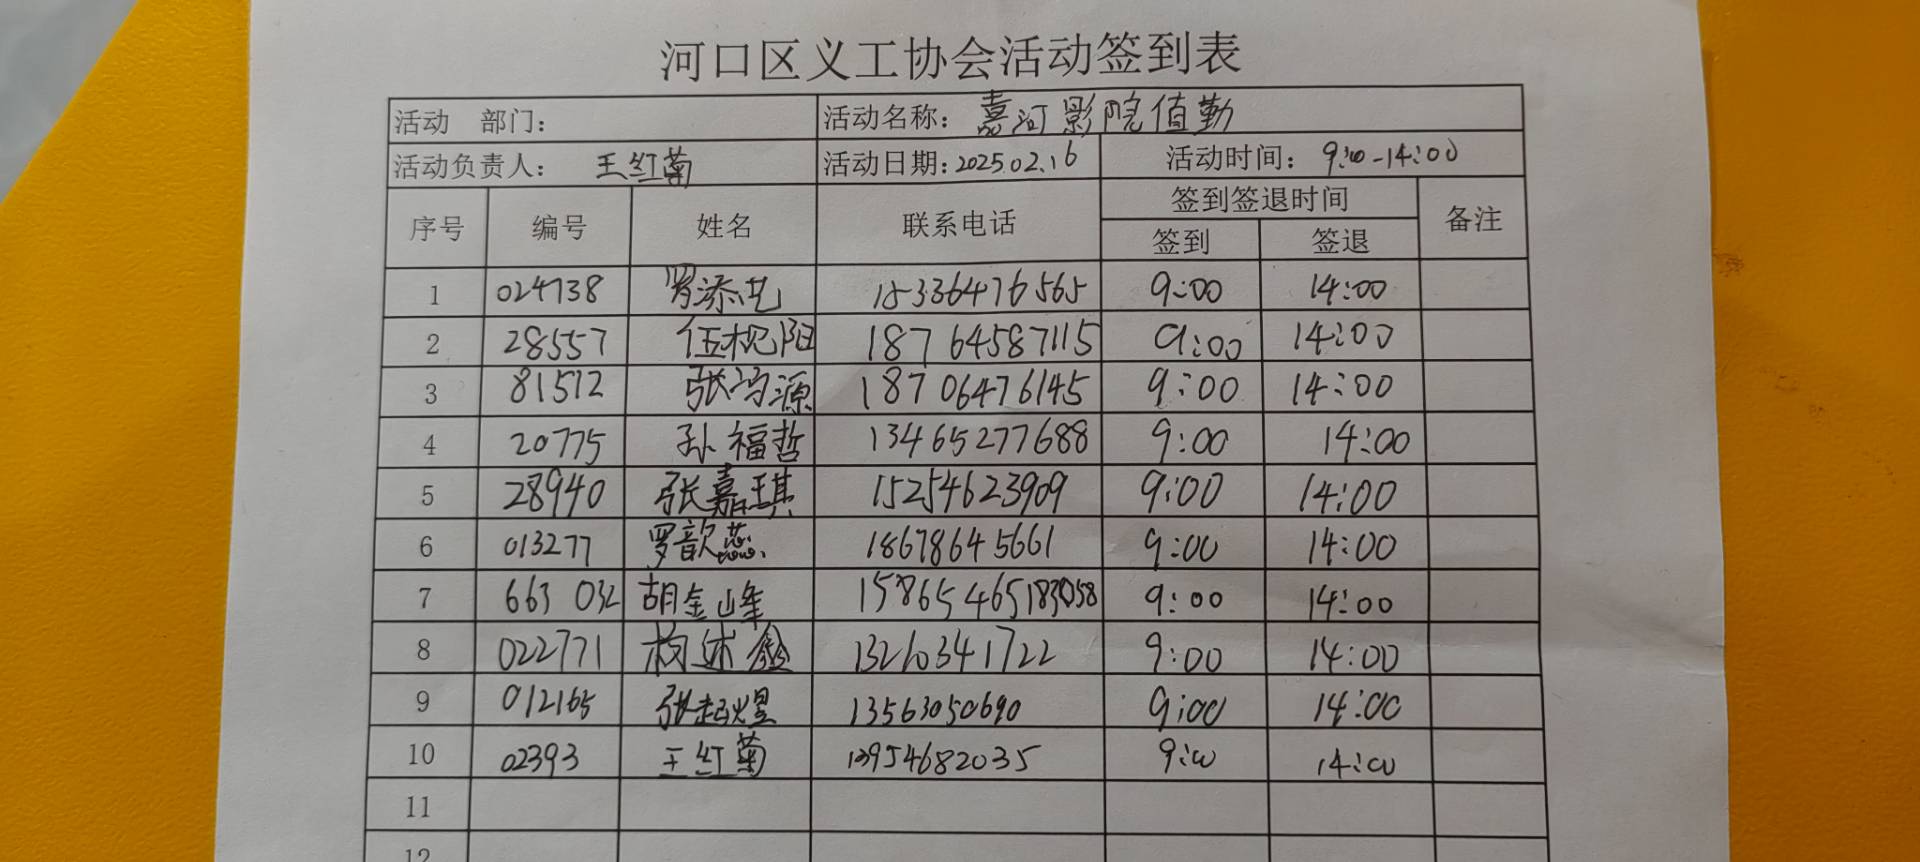 河口区义工协会活动签到表
活动 部门: 活动名称: 嘉河影院值勤
活动负责人: 王红菊 活动日期: 2025.02.16 活动时间: 9:00-14:00
序号 编号 姓名 联系电话 签到签退时间 备注
签到 签退
1 024738 罗添屹 15336476565 9:00 14:00
2 28557 伍枧阳 18764587115 9:00 14:00
3 81512 张冯源 18706476145 9:00 14:00
4 20775 孙福哲 13465277688 9:00 14:00
5 28940 张嘉琪 15254623909 9:00 14:00
6 013277 罗歆蕊 18678645661 9:00 14:00
7 663032 胡金峰 9:00 14:00
8 022771 13260341722 9:00 14:00
9 012165 张起煜 13563050690 9:00 14:00
10 02393 王红菊 13954682035 9:00 14:00
11
12